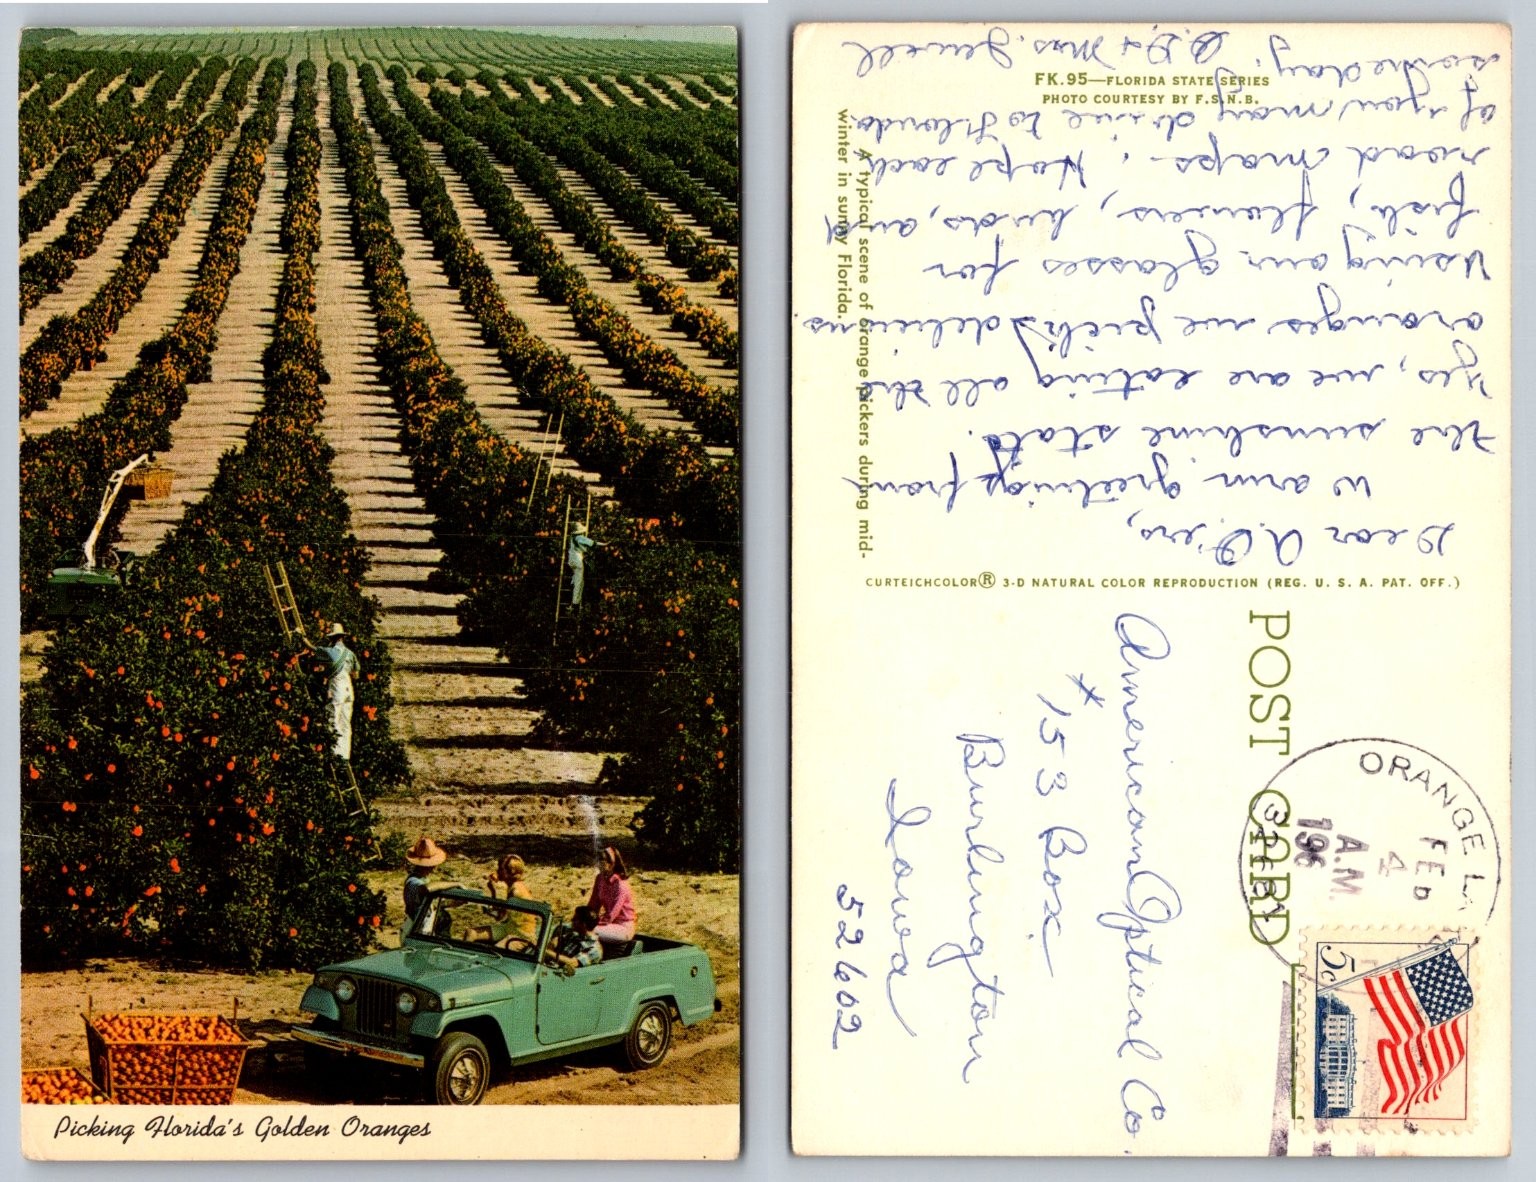 Picking Florida's Golden Oranges
FK.95—FLORIDA STATE SERIES
PHOTO COURTESY BY F.S.N.B.
A typical scene of orange pickers during mid-
winter in sunny Florida.
CURTEICHCOLOR® 3-D NATURAL COLOR REPRODUCTION (REG. U. S. A. PAT. OFF.)
Dear A.O.'ers,
Warm greetings from
the sunshine state.
Yes, we are eating all the
oranges we pick, delicious
Using our glasses for
fish, flowers, birds, and
road maps. Hope each
of you may drive to Florida
some day.
Mrs. Jewell
POST CARD
ORANGE
FEB
4
A.M.
196
5c
American Optical Co.
* 153 Box
Burlington
Iowa
52602